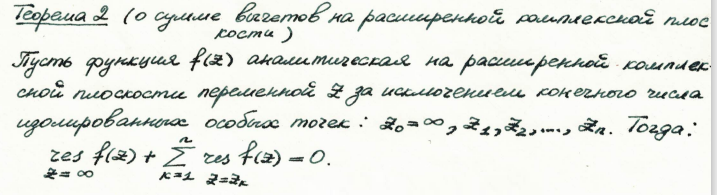 Теорема 2 (о сумме вычетов на расширенной комплексной плос
кости)
Пусть функция f(z) аналитическая на расширенной комплек-
сной плоскости переменной z за исключением конечного числа
изолированных особых точек: z₀=∞, z₁, z₂, ..., zₙ. Тогда:
res f(z) + ∑ res f(z) = 0.
z=∞ k=1 n z=zₖ